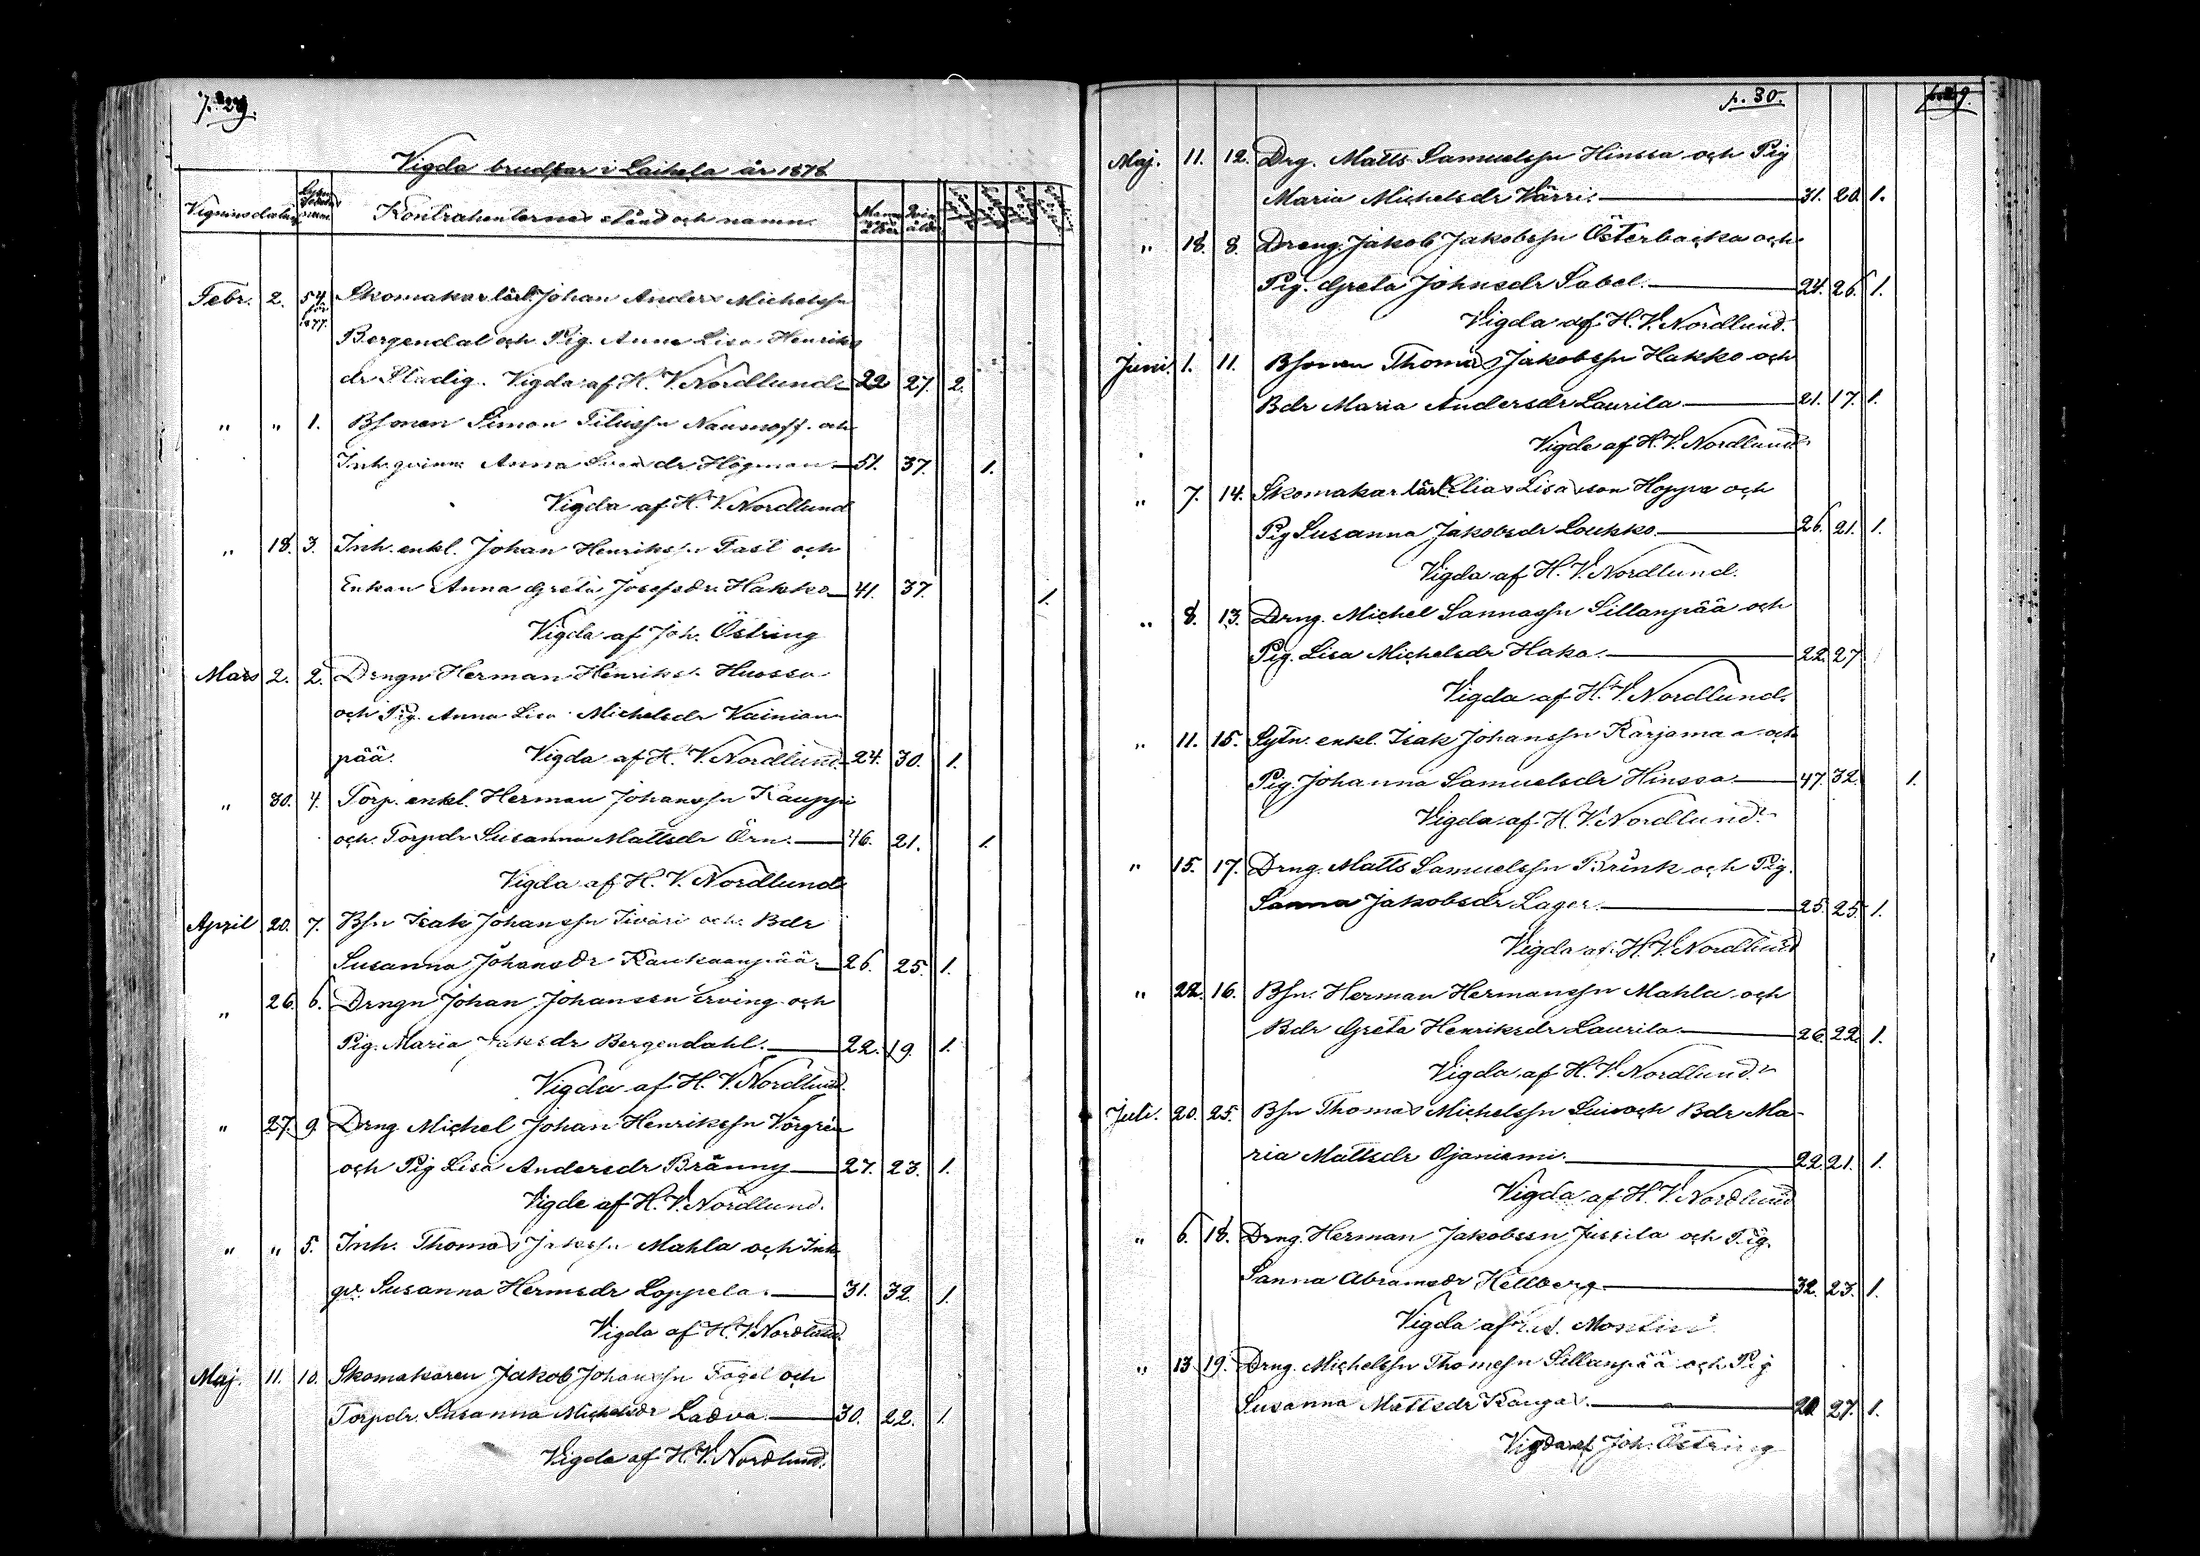 p. 29.
Vigda brudpar i Laihela år 1878
Vigninsdatum Kontrahenternes stånd och namn.
Febr. 2. 54. för 1877. Skomakarelärl. Johan Anders Michelssn
Bergendal och Pig. Anna Lisa Henriks
dr Stadig. Vigda af H. V. Nordlund 22 27. 2.
" " 1. Bsonen Simon Titussn Naumoff och
Inh. qvinn Anna dr Högman 51. 37. 1.
Vigda af H. V. Nordlund
" 18. 3. Inh. enkl. Johan Henrikssn Fast och
Enkan Anna Greta Josefsdr Hakko 41. 37. 1.
Vigda af Joh. Östring
Mars 2. 2. Drngn Herman Henriks. Huossa
och Pig. Anna Lisa Michelsdr Vainion
pää. Vigda af H. V. Nordlund 24. 30. 1.
" 30. 4. Torp. enkl. Herman Johanssn Kauppi
och Torpdr Susanna Mattsdr Örn. 46. 21. 1.
Vigda af H. V. Nordlund
April 20. 7. Bsn Isak Johanssn Tivari och Bdr
Susanna Johansdr Rautaanpää 26. 25. 1.
" 26. 6. Drngn Johan Johanssn Erving och
Pig. Maria Jaksdr Bergendahl. 22. 19. 1.
Vigda af H. V. Nordlund.
" 27. 9. Drng. Michel Johan Henrikssn Vörgrén
och Pig Lisa Andersdr Bränny 27. 23. 1.
Vigde af H. V. Nordlund.
" " 5. Inh. Thomas Jakssn Mahla och Inh
qv. Susanna Hermsdr Loppela. 31. 32. 1.
Vigda af H. V. Nordlund
Maj. 11. 10. Skomakaren Jakob Johanssn Fogel och
Torpdr. Susanna Michelsdr Ladva 30. 22. 1.
Vigda af H. V. Nordlund.
p. 30.
Maj. 11. 12. Drg. Matts Samuelssn Hinssa och Pig
Maria Michelsdr Härri. 31. 20. 1.
" 18. 8. Dreng. Jakob Jakobssn Österbacka och
Pig. Greta Johnsdr Sabel. 24. 26. 1.
Vigda af H. V. Nordlund.
Juni. 1. 11. Bsonen Thomas Jakobssn Hakko och
Bdr Maria Andersdr Laurila 21. 17. 1.
Vigde af H. V. Nordlund
" 7. 14. Skomakarlärl. Elias Lisason Hoppa och
Pig Susanna Jakobsdr Loukko. 26. 21. 1.
Vigda af H. V. Nordlund.
" 8. 13. Drng. Michel Sannassn Sillanpää och
Pig. Lisa Michelsdr Hako. 22. 27
Vigda af H. V. Nordlund.
" 11. 15. Sytn. enkl. Isak Johanssn Karjamaa och
Pig. Johanna Samuelsdr Hinssa. 47. 32. 1.
Vigda af H. V. Nordlund.
" 15. 17. Drng. Matts Samuelssn Brink och Pig.
Sanna Jakobsdr Lager. 25. 25. 1.
Vigda af H. V. Nordlund
" 22. 16. Bsn. Herman Hermanssn Mahla och
Bdr Greta Henriksdr Laurila. 26. 22. 1.
Vigda af H. V. Nordlund.
Juli. 20. 25. Bsn Thomas Michelssn Luiro och Bdr Ma-
ria Mattsdr Ojaniemi. 22. 21. 1.
Vigda af H. V. Nordlund
" 6. 18. Drng. Herman Jakobssn Jussila och Pig.
Sanna Abramsdr Hellberg 32. 23. 1.
Vigda af Montin
" 13 19. Drng. Michelssn Thomssn Sillanpää och Pig
Susanna Mattsdr Kangas. 20 27. 1.
Vigda af Joh. Östring